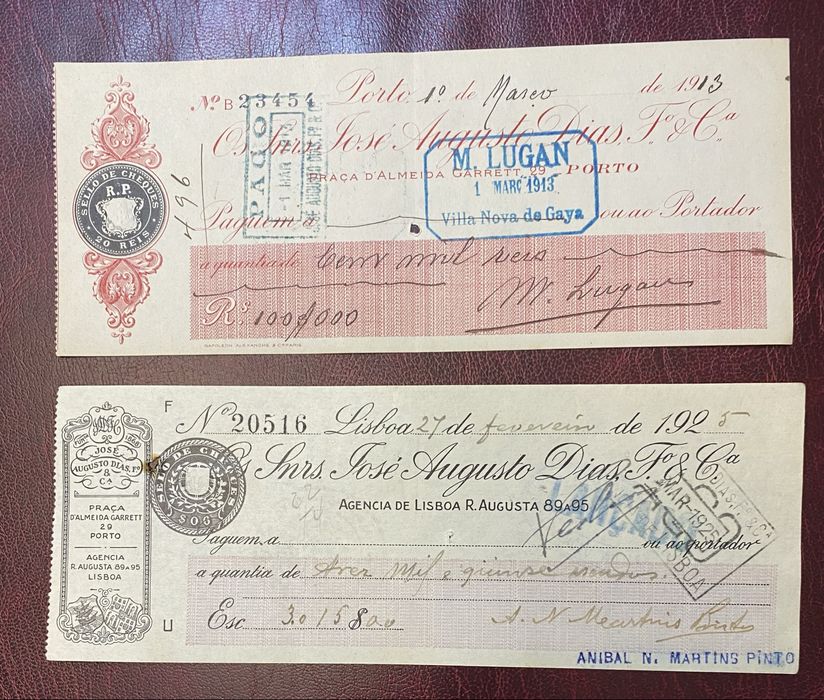 Nº B 23454 Porto, 1º de Março de 1913
Os Snrs. José Augusto Dias, Fº & Cª
PRAÇA D'ALMEIDA GARRETT, 29 - PORTO
Paguem á ou ao Portador
a quantia de Cem mil reis
Rs. 100$000
M. Lugan
NAPOLÉON ALEXANDRE & C.PARIS
SELLO DE CHEQUES
R.P.
20 REIS
496
PAGO
-1 MAR 1913
JOSÉ AUGUSTO DIAS, Fº & Cª
M. LUGAN
1 MARÇ 1913
Villa Nova de Gaya
F
Nº 20516 Lisboa 27 de fevereiro de 1925
Os Snrs. José Augusto Dias, Fº & Cª
AGENCIA DE LISBOA R. AUGUSTA 89 A 95
Paguem a ou ao portador
a quantia de tres mil e quinse escudos.
Esc 3.015$00
A. N. Martins Pinto
ANIBAL N. MARTINS PINTO
U
JOSÉ
AUGUSTO DIAS, Fº
&
Cª
PRAÇA
D'ALMEIDA GARRETT
29
PORTO
AGENCIA
R. AUGUSTA 89 A 95
LISBOA
SELLO DE CHEQUES
DIAS, Fº & Cª
PAGO
MAR-192
LISBOA